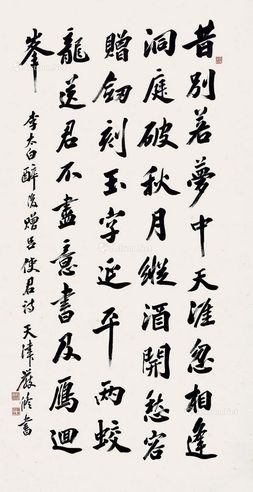 昔別若夢中天涯忽相逢
洞庭破秋月縱酒開愁容
贈劒刻玉字延平兩蛟
龍送君不盡意書及雁迴
峯
李太白醉後贈呂使君詩 天津嚴修書